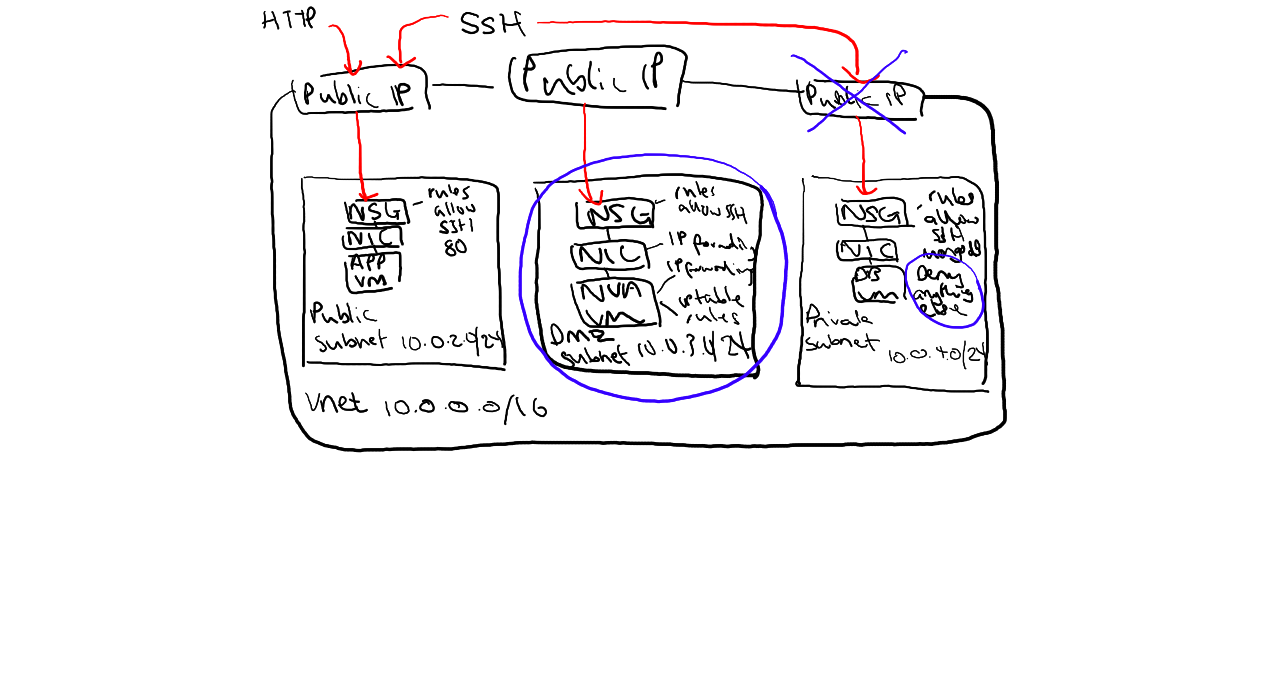 HTTP
SSH
Public IP
Public IP
Public IP
NSG
rules
allow
SSH
80
NIC
APP
VM
Public
subnet 10.0.2.0/24
NSG
rules
allow SSH
NIC
IP forwarding
NVA
VM
IP forwarding
iptable
rules
DMZ
subnet 10.0.3.0/24
NSG
rules
allow
SSH
mongodb
NIC
DB
VM
Deny
anything
else
Private
subnet
10.0.4.0/24
Vnet 10.0.0.0/16